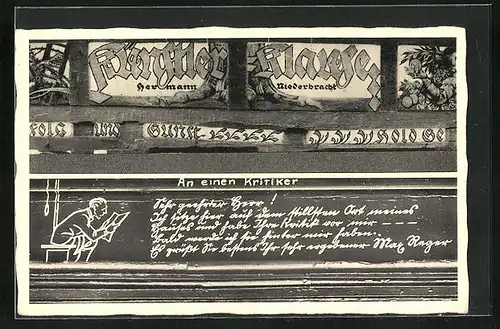 Künstler Klause
Hermann Niederbracht
FOLG UND GUNST
HOLD
An einen Kritiker
Sehr geehrter Herr!
Ich sitze hier auf dem stillsten Ort meines
Hauses und habe Ihre Kritik vor mir
Bald werde ich sie hinter mir haben.
Es grüßt Sie bestens Ihr sehr ergebener Max Reger